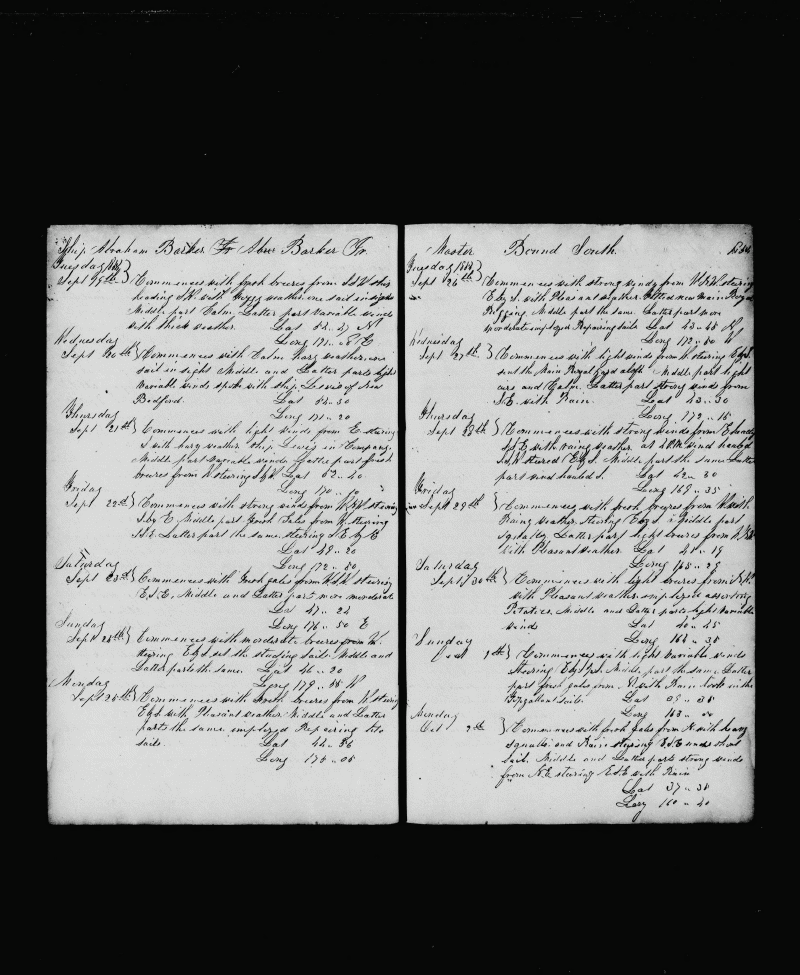 Ship Abraham Barker Abm Barker Jr.
Tuesday
Sept 19th Commences with fresh breeres from SSW ship
heading with foggy weather one sail in sight
Middle part Calm Latter part Variable winds
with thick weather. Lat 52 .. 27 N
Long 171 .. E
Wednesday
Sept 20th Commences with Calm hazy weather one
sail in sight Middle and Latter parts light
Variable winds spoke with ship Lewis of New
Bedford. Lat 52 .. 30
Long 171 .. 20
Thursday
Sept 21st Commences with light winds from E. steering
S with hazy weather ship Lewis in Company.
Middle part Variable winds Latter part fresh
breeres from W steering Lat 52 .. 40
Long 170 .. 50
Friday
Sept 22nd Commences with strong winds from steering
S. by E Middle part fresh Gales from W. steering
S.S.E. Latter part the same. steering S E by E
Lat 49 .. 20
Long 172 .. 50
Saturday
Sept 23rd Commences with fresh gales from steering
E.S.E, Middle and Latter part more moderate
Lat 47 .. 22
Long 176 .. 50 E
Sunday
Sept 24th Commences with morderate breeres from W.
steering E by S. set the studing sails Middle and
Latter parts the same Lat 46 .. 20
Long 179 .. 55 W
Monday
Sept 25th Commences with fresh breeres from W steering
E by S with Pleasant weather Middle and Latter
parts the same employed Repairing
sails. Lat 44 .. 56
Long 175 .. 05
Master Bound South.
Tuesday
Sept 26th Commences with strong winds from steering
E by S. with Pleasant weather. fitted new Main Royal
Rigging Middle part the same. Latter part more
morderate employed Repairing sails Lat 43 .. 48 N
Long 173 .. 50 W
Wednesday
Sept 27th Commences with light winds from steering E by S.
sent the Main Royal yard aloft Middle part light
airs and Calm. Latter part strong winds from
S.E. with Rain. Lat 43 .. 30
Long 172 .. 15
Thursday
Sept 28th Commences with strong winds from
S by E with rainy weather at wind hauled
steered E by S. Middle part the same Latter
part wind hauled S. Lat 42 .. 30
Long 169 .. 35
Friday
Sept 29th Commences with fresh breeres from with
Rainy weather. steering E by S Middle part
squally Latter part light breeres from
with Pleasant weather Lat 41 .. 19
Long 165 .. 25
Saturday
Sept 30th Commences with light breeres from
with Pleasant weather. employed assorting
Potatoes, Middle and Latter parts light Variable
winds Lat 40 .. 45
Long 164 .. 35
Sunday
Oct 1st Commences with light Variable winds
Steering E by S. Middle part the same. Latter
part fresh gales from North Rain took in the
Topgallant sails. Lat 39 .. 35
Long 163 .. 00
Monday
Oct 2nd Commences with fresh gales from N. with heavy
squalls and Rain steering E.S.E under short
sail. Middle and Latter parts strong winds
from N.E. steering E.S.E with Rain
Lat 37 .. 38
Long 160 .. 20